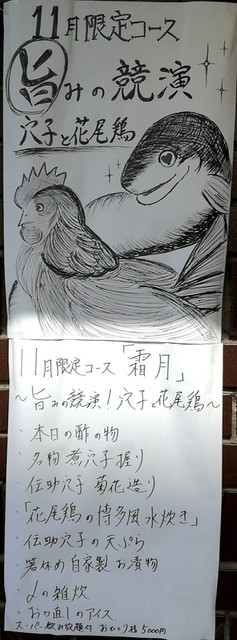 11月限定コース
旨みの競演
穴子と花尾鶏
11月限定コース「霜月」
〜旨みの競演!穴子と花尾鶏〜
・本日の酢の物
・名物 煮穴子握り
・伝助穴子 菊花造り
・「花尾鶏の博多風水炊き」
・伝助穴子の天ぷら
・箸休め 自家製 お漬物
・〆の雑炊
・お口直しのアイス
スーパー飲み放題付 おひとり様 5000円